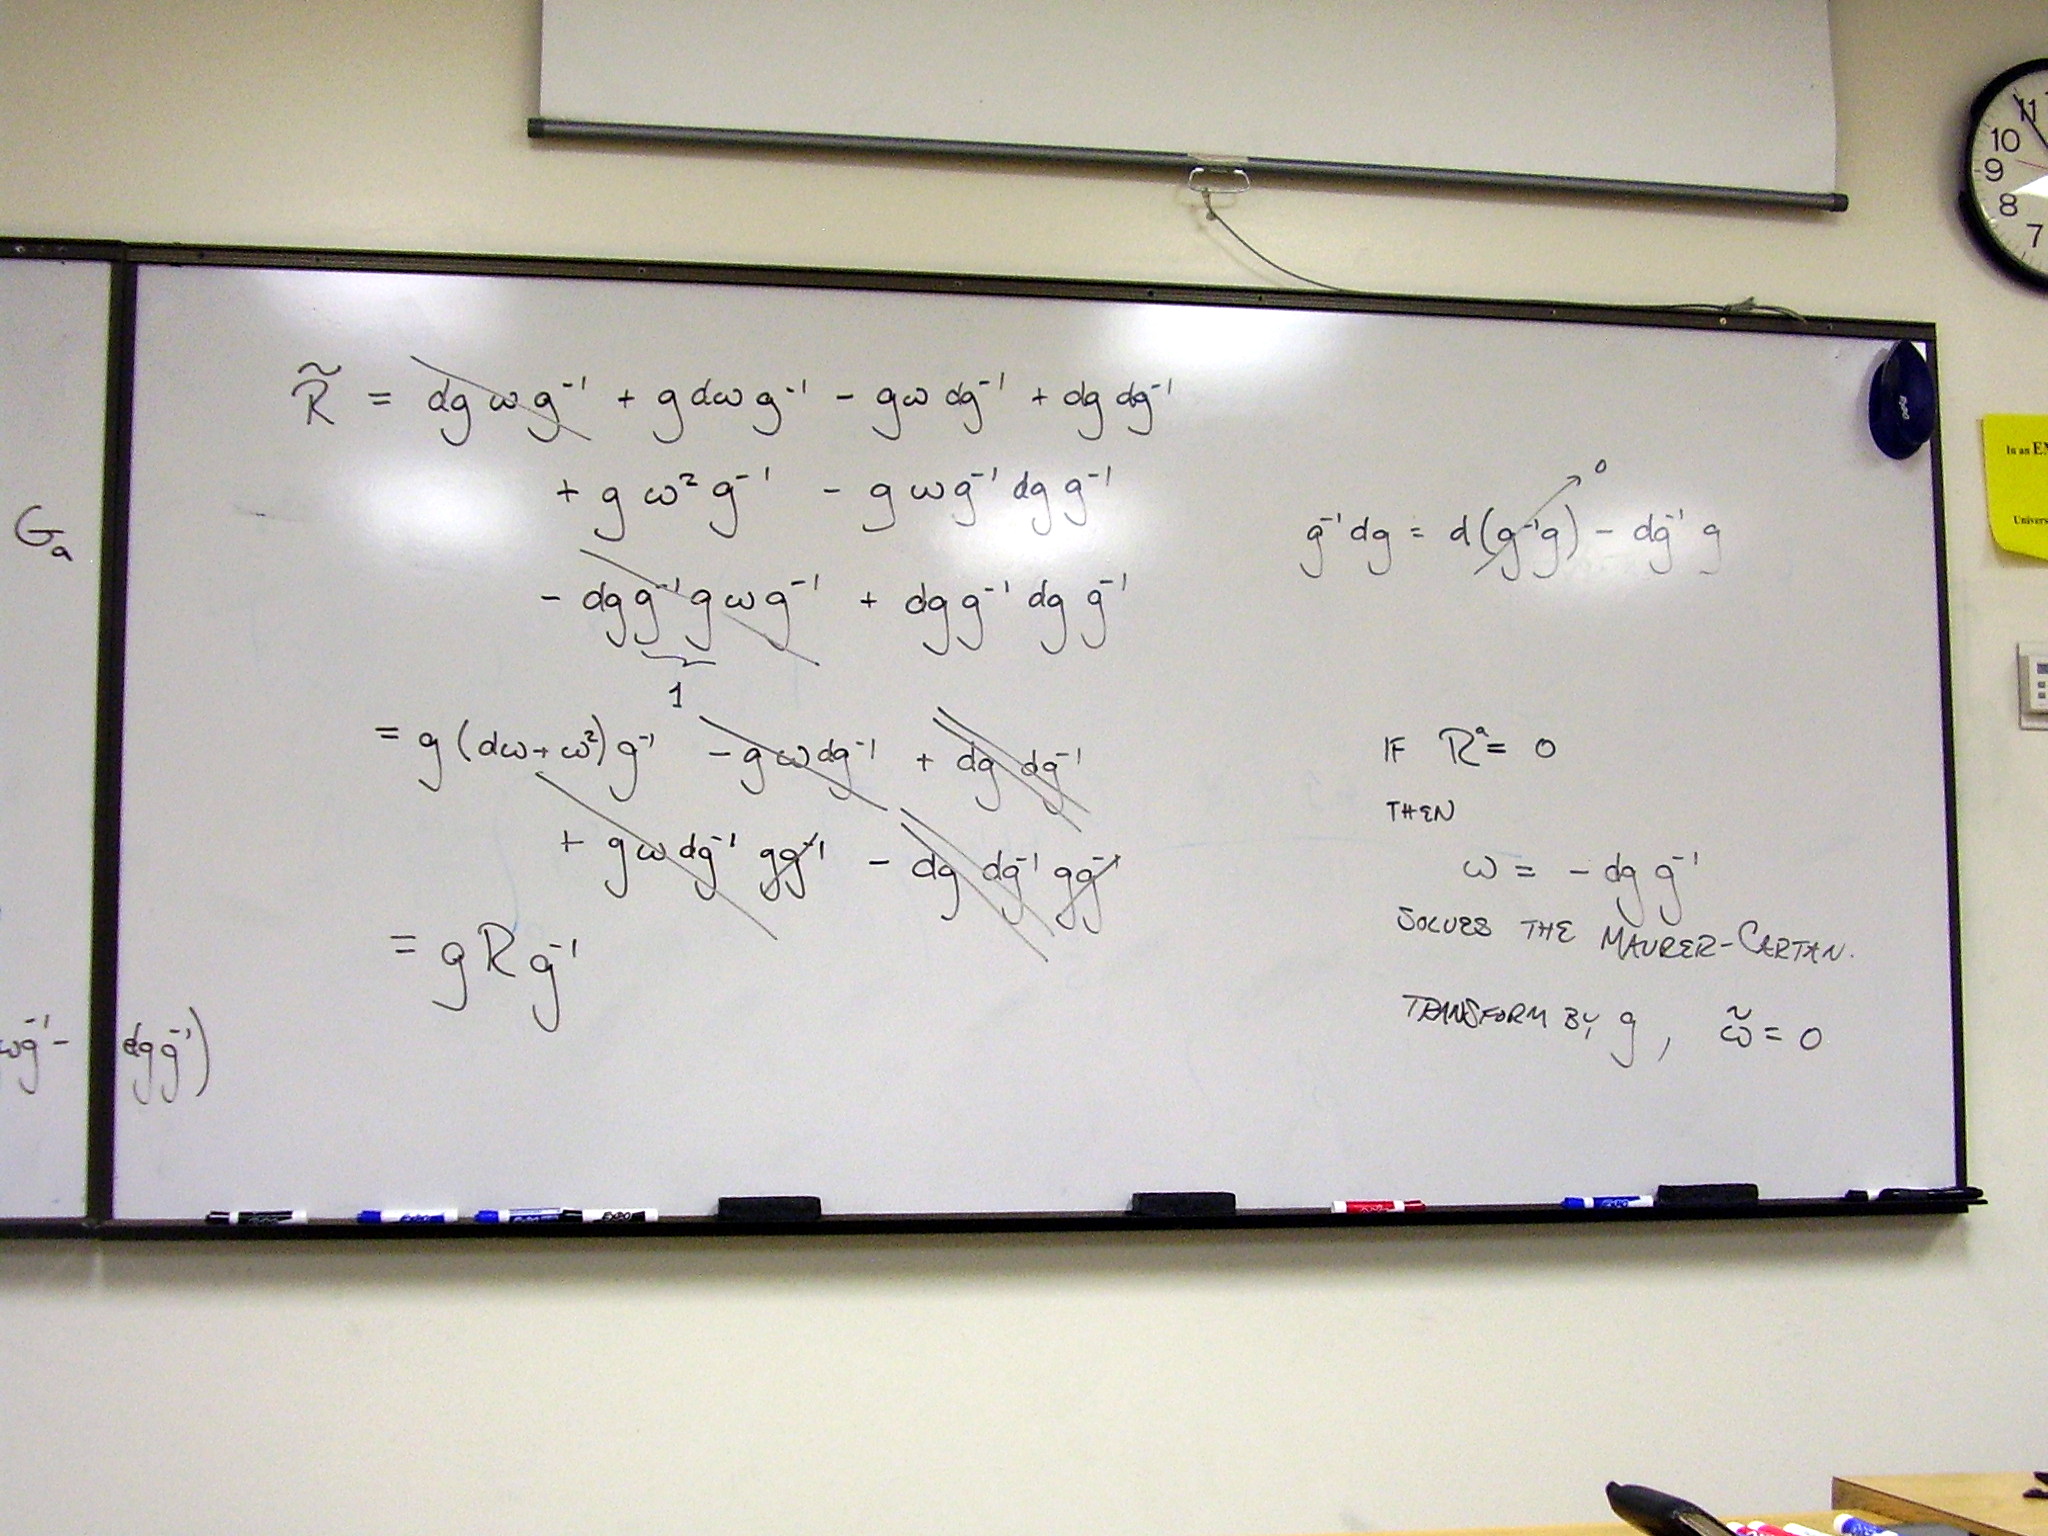 R̃ = dg ω g⁻¹ + g dω g⁻¹ - gω dg⁻¹ + dg dg⁻¹
+ g ω² g⁻¹ - g ω g⁻¹ dg g⁻¹
- dg g⁻¹ g ω g⁻¹ + dg g⁻¹ dg g⁻¹
1
= g (dω + ω²) g⁻¹ - g ω dg⁻¹ + dg dg⁻¹
+ g ω dg⁻¹ gg⁻¹ - dg dg⁻¹ gg⁻¹
= g R g⁻¹
Gₐ
ωg⁻¹ - dg g⁻¹)
0
g⁻¹ dg = d(g⁻¹g) - dg⁻¹ g
IF Rᵃ = 0
THEN
ω = - dg g⁻¹
SOLVES THE MAURER-CARTAN.
TRANSFORM BY g, ω̃ = 0
11
10
9
8
7
In an EM
Univers
EXPO
EXPO